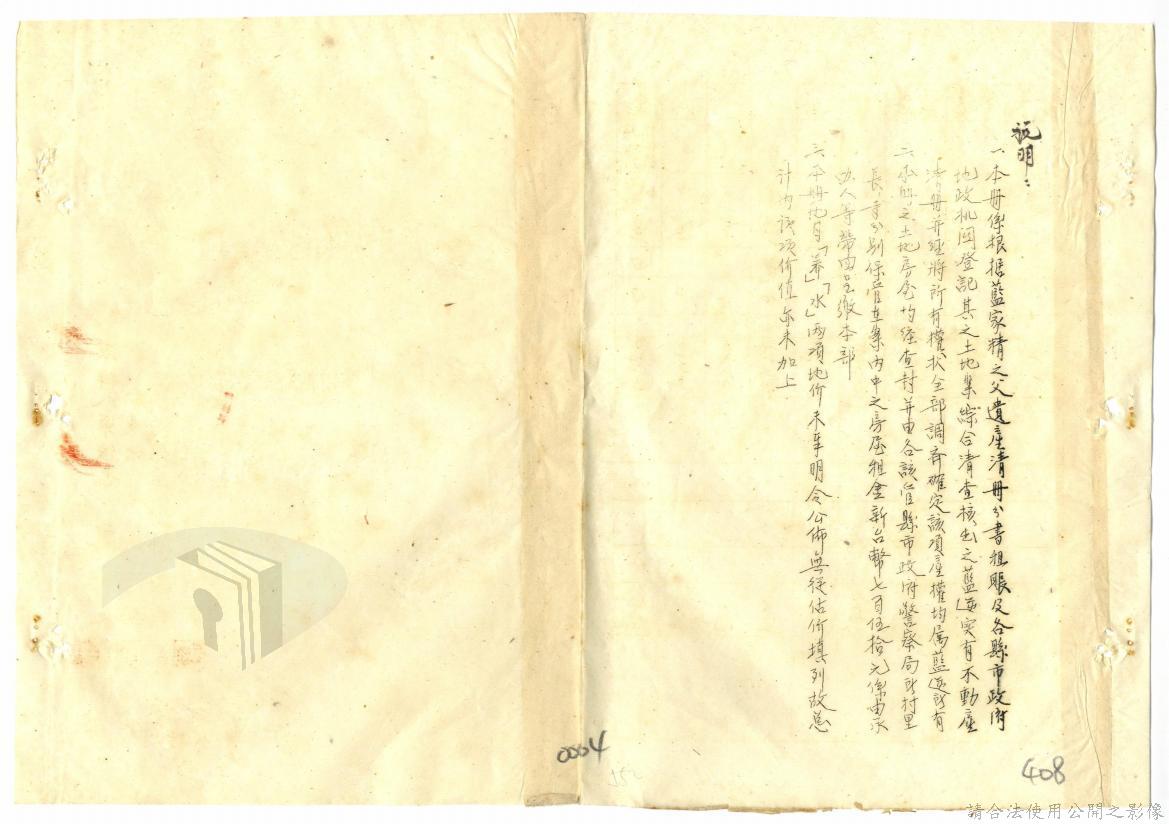 説明：
一、本冊係根据藍家精之父遺產清冊分書租賬及各縣市政府
地政机関登記其之土地業綜合清查核出之藍逆实有不動產
清冊并經將所有權狀全部調齐確定該項產權均属藍逆所有
二、之土地房屋均經查封并由各該管縣市政府警察局所村里
長等分別保管在案内中之房屋租金新台幣七百伍拾元係由承
办人等帶回呈缴本部
三、本冊地目「养」「水」兩項地价未奉明令公佈無從估价填列故总
计内该项价值亦未加上
408
0004
152
請合法使用公開之影像